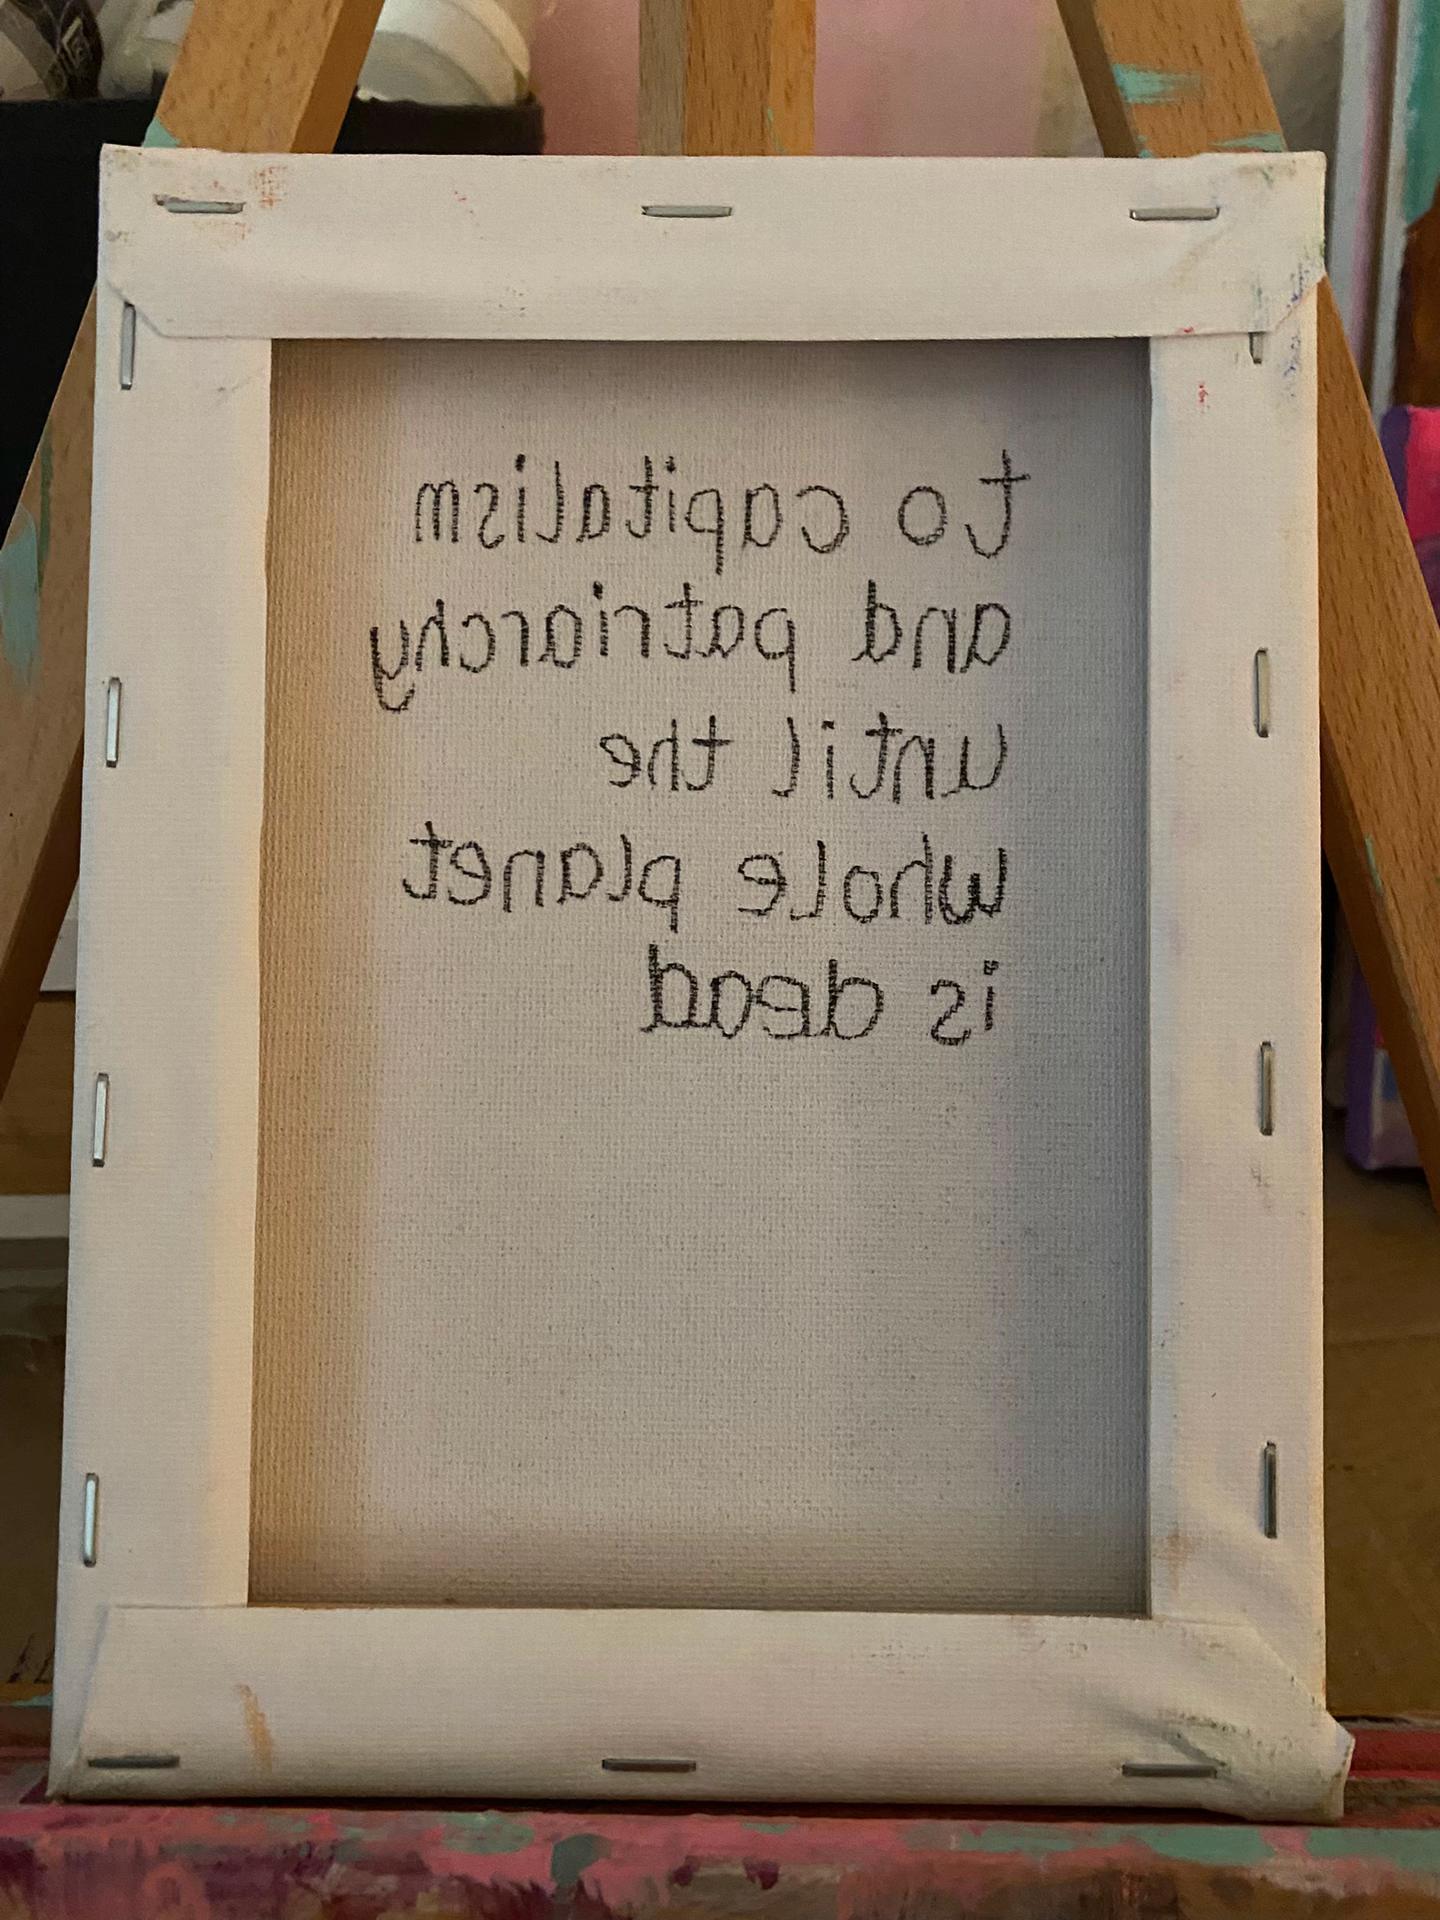 to capitalism
and patriarchy
until the
whole planet
is dead